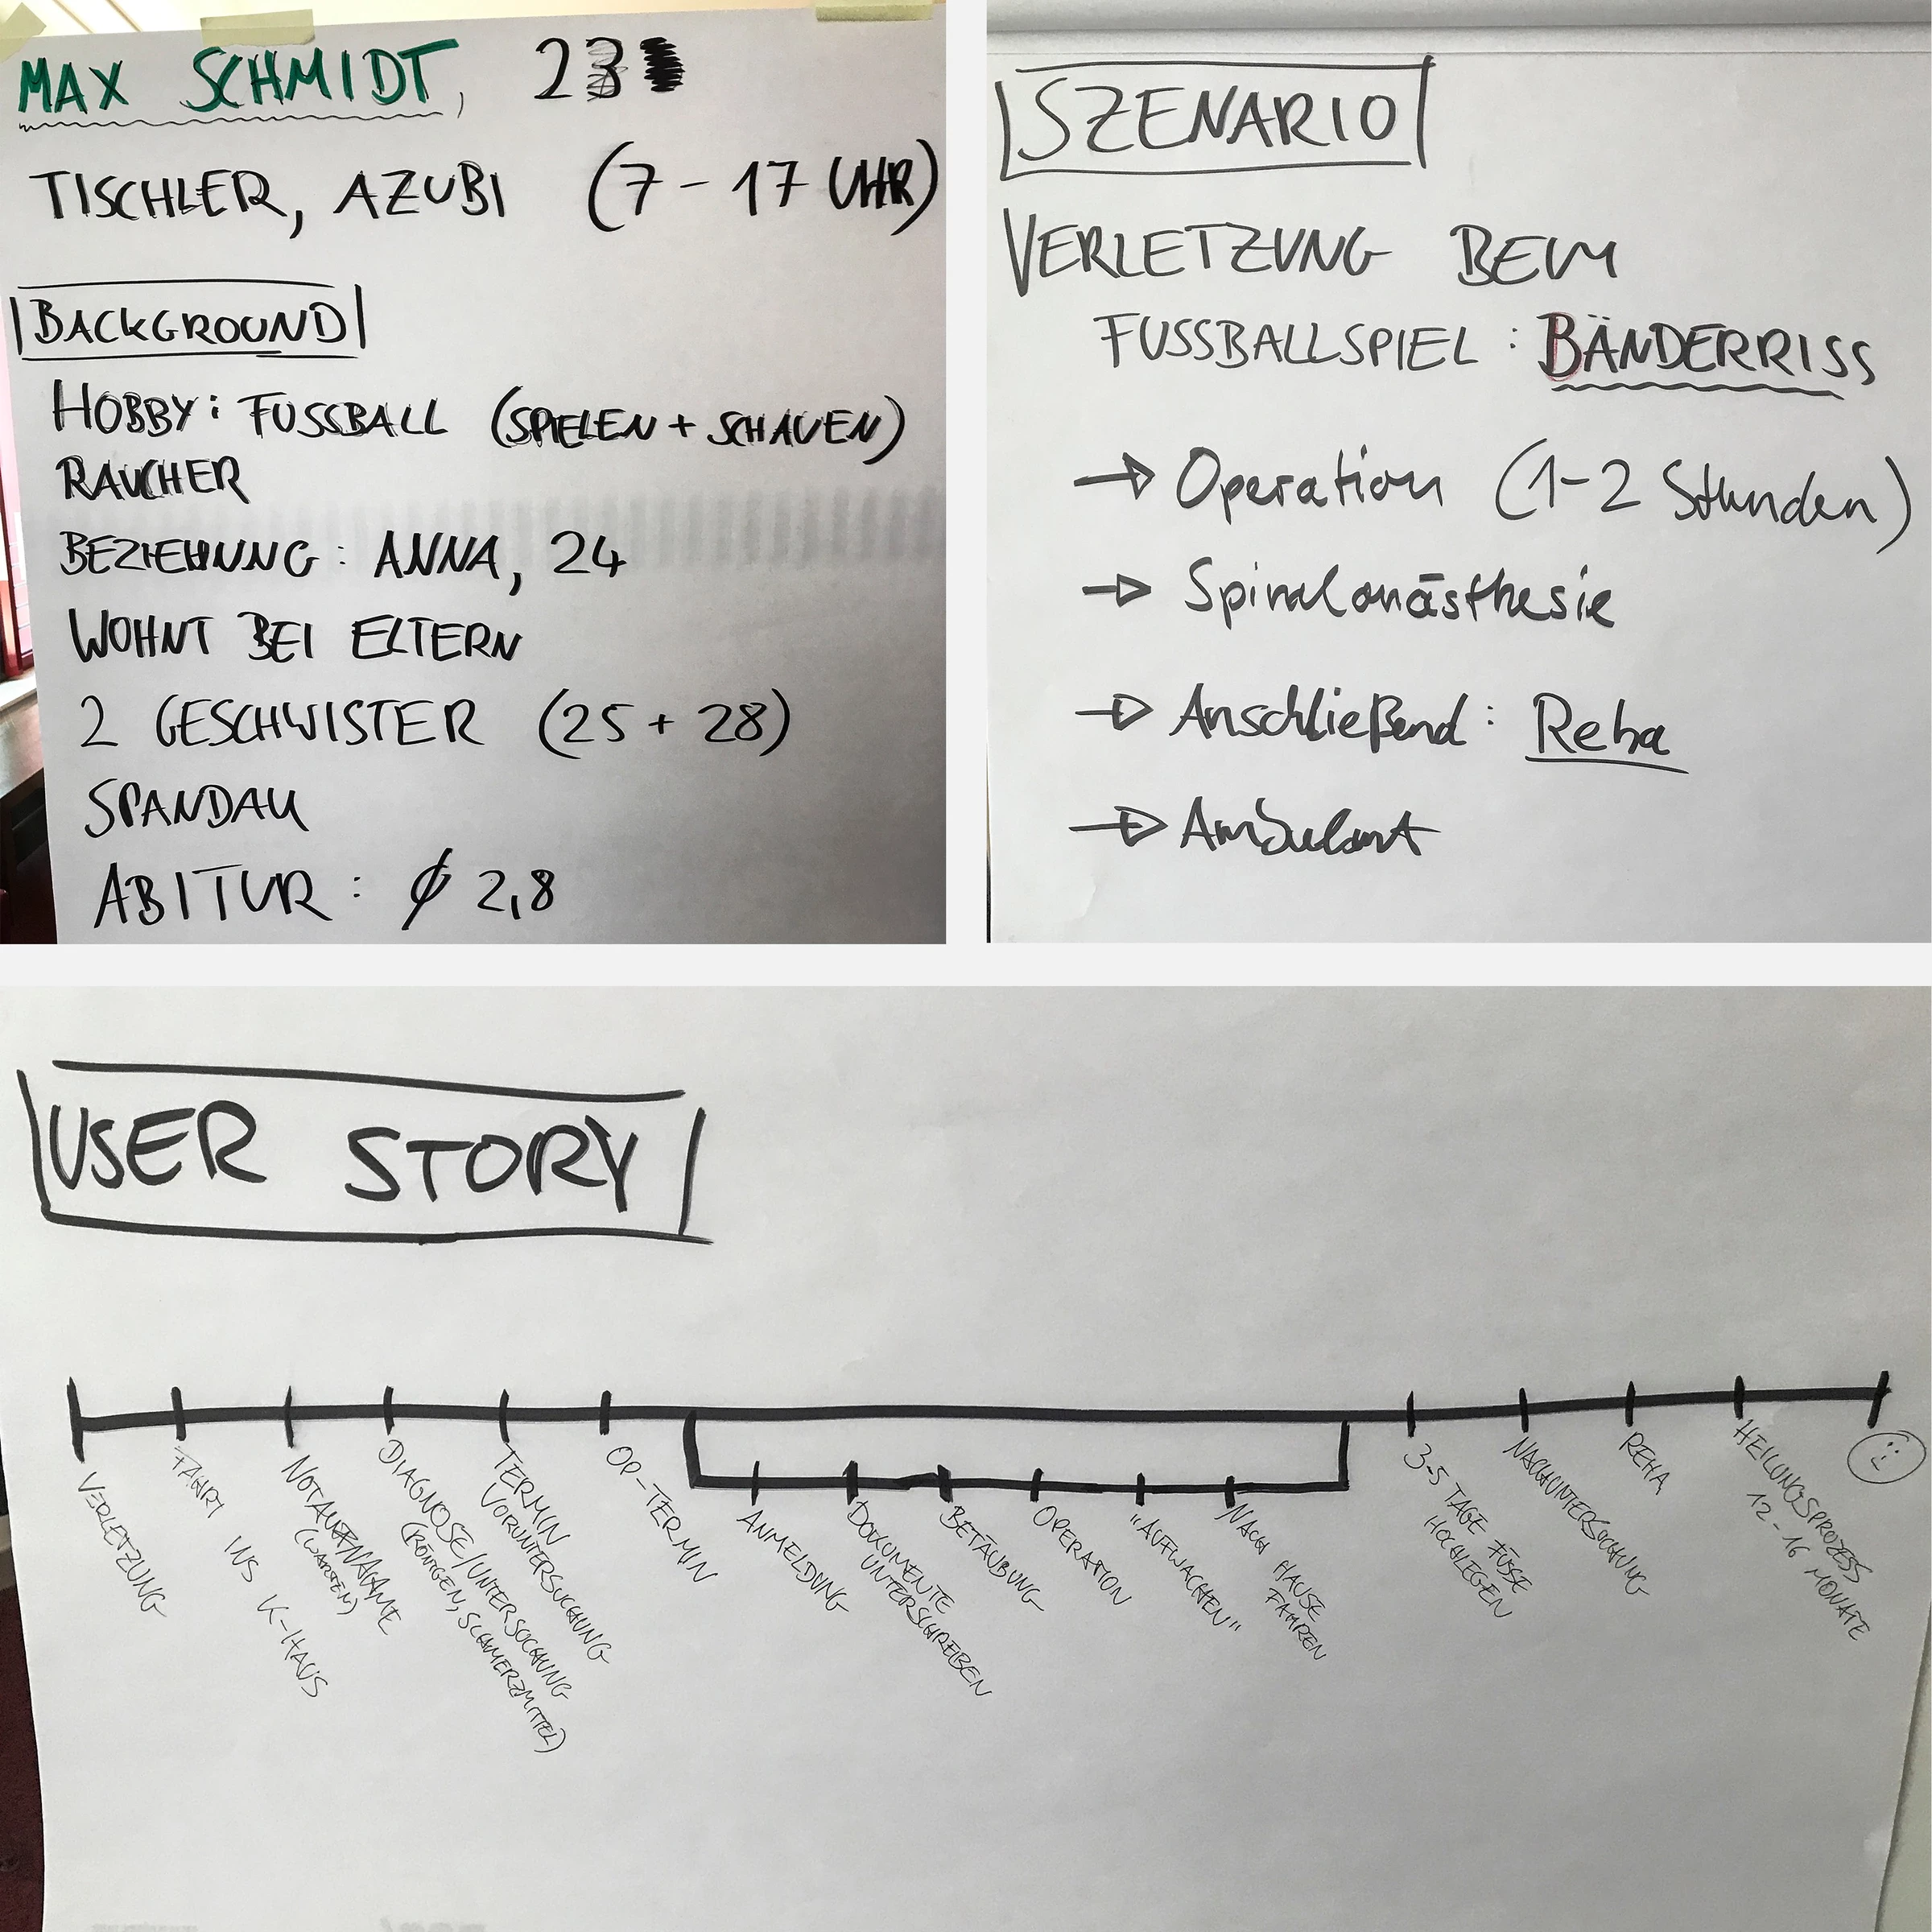 MAX SCHMIDT, 23
TISCHLER, AZUBI (7-17 UHR)
BACKGROUND
HOBBY: FUSSBALL (SPIELEN + SCHAUEN)
RAUCHER
BEZIEHUNG: ANNA, 24
WOHNT BEI ELTERN
2 GESCHWISTER (25 + 28)
SPANDAU
ABITUR: ∅ 2,8
SZENARIO
VERLETZUNG BEIM
FUSSBALLSPIEL: BÄNDERRISS
→ Operation (1-2 Stunden)
→ Spinalanästhesie
→ Anschließend: Reha
→ Ambulant
USER STORY
VERLETZUNG
FAHRT INS K-HAUS
NOTAUFNAHME
(WARTEN)
DIAGNOSE/UNTERSUCHUNG
(RÖNTGEN, SCHMERZMITTEL)
TERMIN
VORUNTERSUCHUNG
OP-TERMIN
ANMELDUNG
DOKUMENTE
UNTERSCHREIBEN
BETÄUBUNG
OPERATION
„AUFWACHEN"
NACH HAUSE
FAHREN
3-5 TAGE FÜSSE
HOCHLEGEN
NACHUNTERSUCHUNG
REHA
HEILUNGSPROZESS
12-16 MONATE